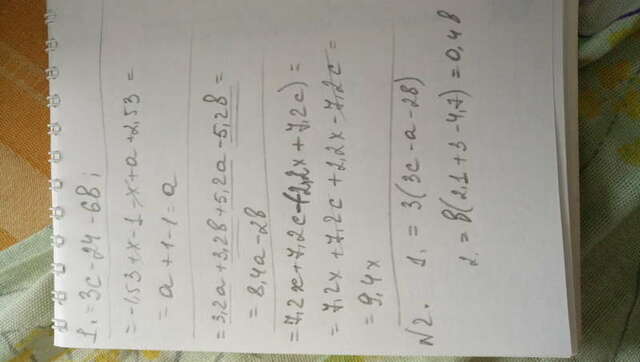 1. = 3c - 24 - 6в;
= -1,53 + x - 1 - x + a + 2,53 =
= a + 1 - 1 = a
= 3,2a + 3,2в + 5,2a - 5,2в =
= 8,4a - 2в
= 7,2x + 7,2c + 2,2x + 7,2c) =
= 7,2x + 7,2c + 2,2x - 7,2c =
= 9,4x
N2. 1. = 3(3c - a - 2в)
2. = в(2,1 + 3 - 4,7) = 0,4в